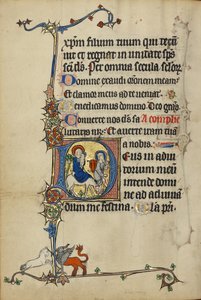 xp̄m filium tuum qui tecū
uiuit et regnat in unitate sp̄s
sc̄i ds̄. Per omnia secula seloꝝ
Domine exaudi orōnem meam
Et clamor meus ad te ueniat.
Benedicamus domino Deo grās
Conuerte nos ds̄ sa A complie
lutaris nr̄. Et auerte iram tuā
a nobis.
Deus in adiu
torium meū
intende domi
ne ad adiuua
dum me festina. la pr̄i.